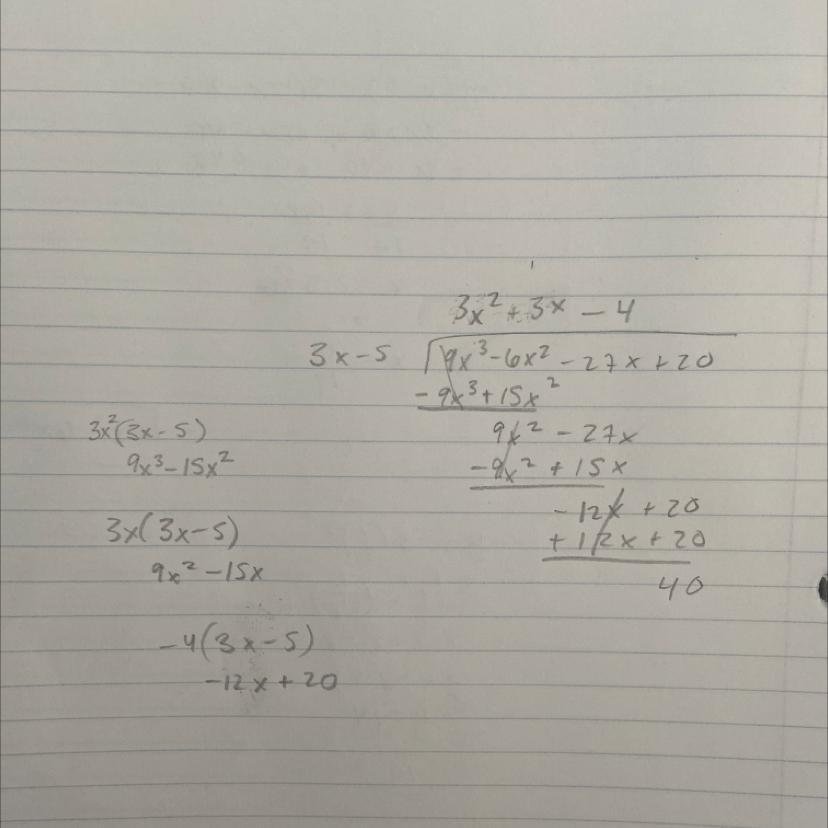 3x² + 3x - 4
3x - 5 √9x³ - 6x² - 27x + 20
- 9x³ + 15x²
9x² - 27x
- 9x² + 15x
- 12x + 20
+ 12x + 20
40
3x²(3x - 5)
9x³ - 15x²
3x(3x - 5)
9x² - 15x
-4(3x - 5)
-12x + 20